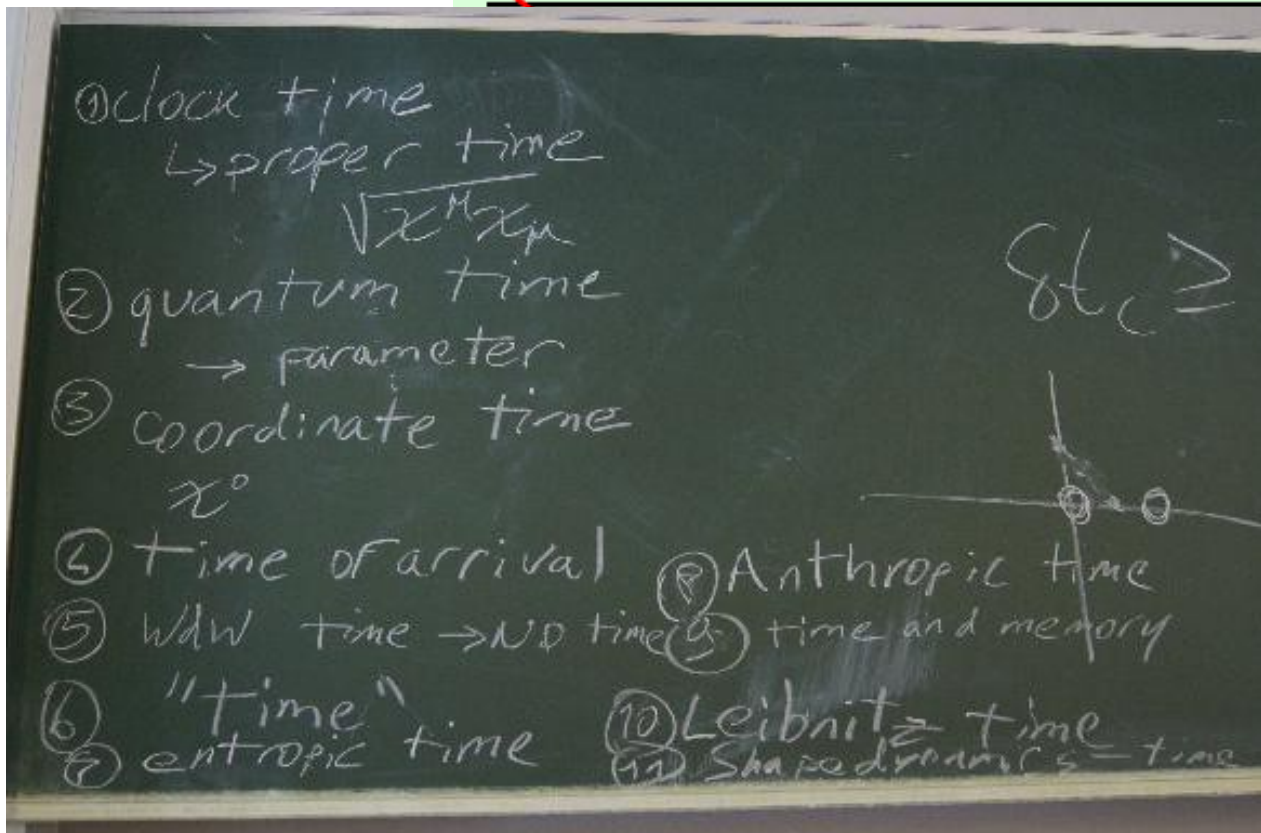 ① clock time
↳ proper time
√x^μ x_μ
② quantum time
→ parameter
③ coordinate time
x⁰
④ time of arrival
⑤ WdW time → NO time
⑥ "time"
⑦ entropic time
⑧ Anthropic time
⑨ time and memory
⑩ Leibnitz time
⑪ Shapedynamics - time
δt_c ≥